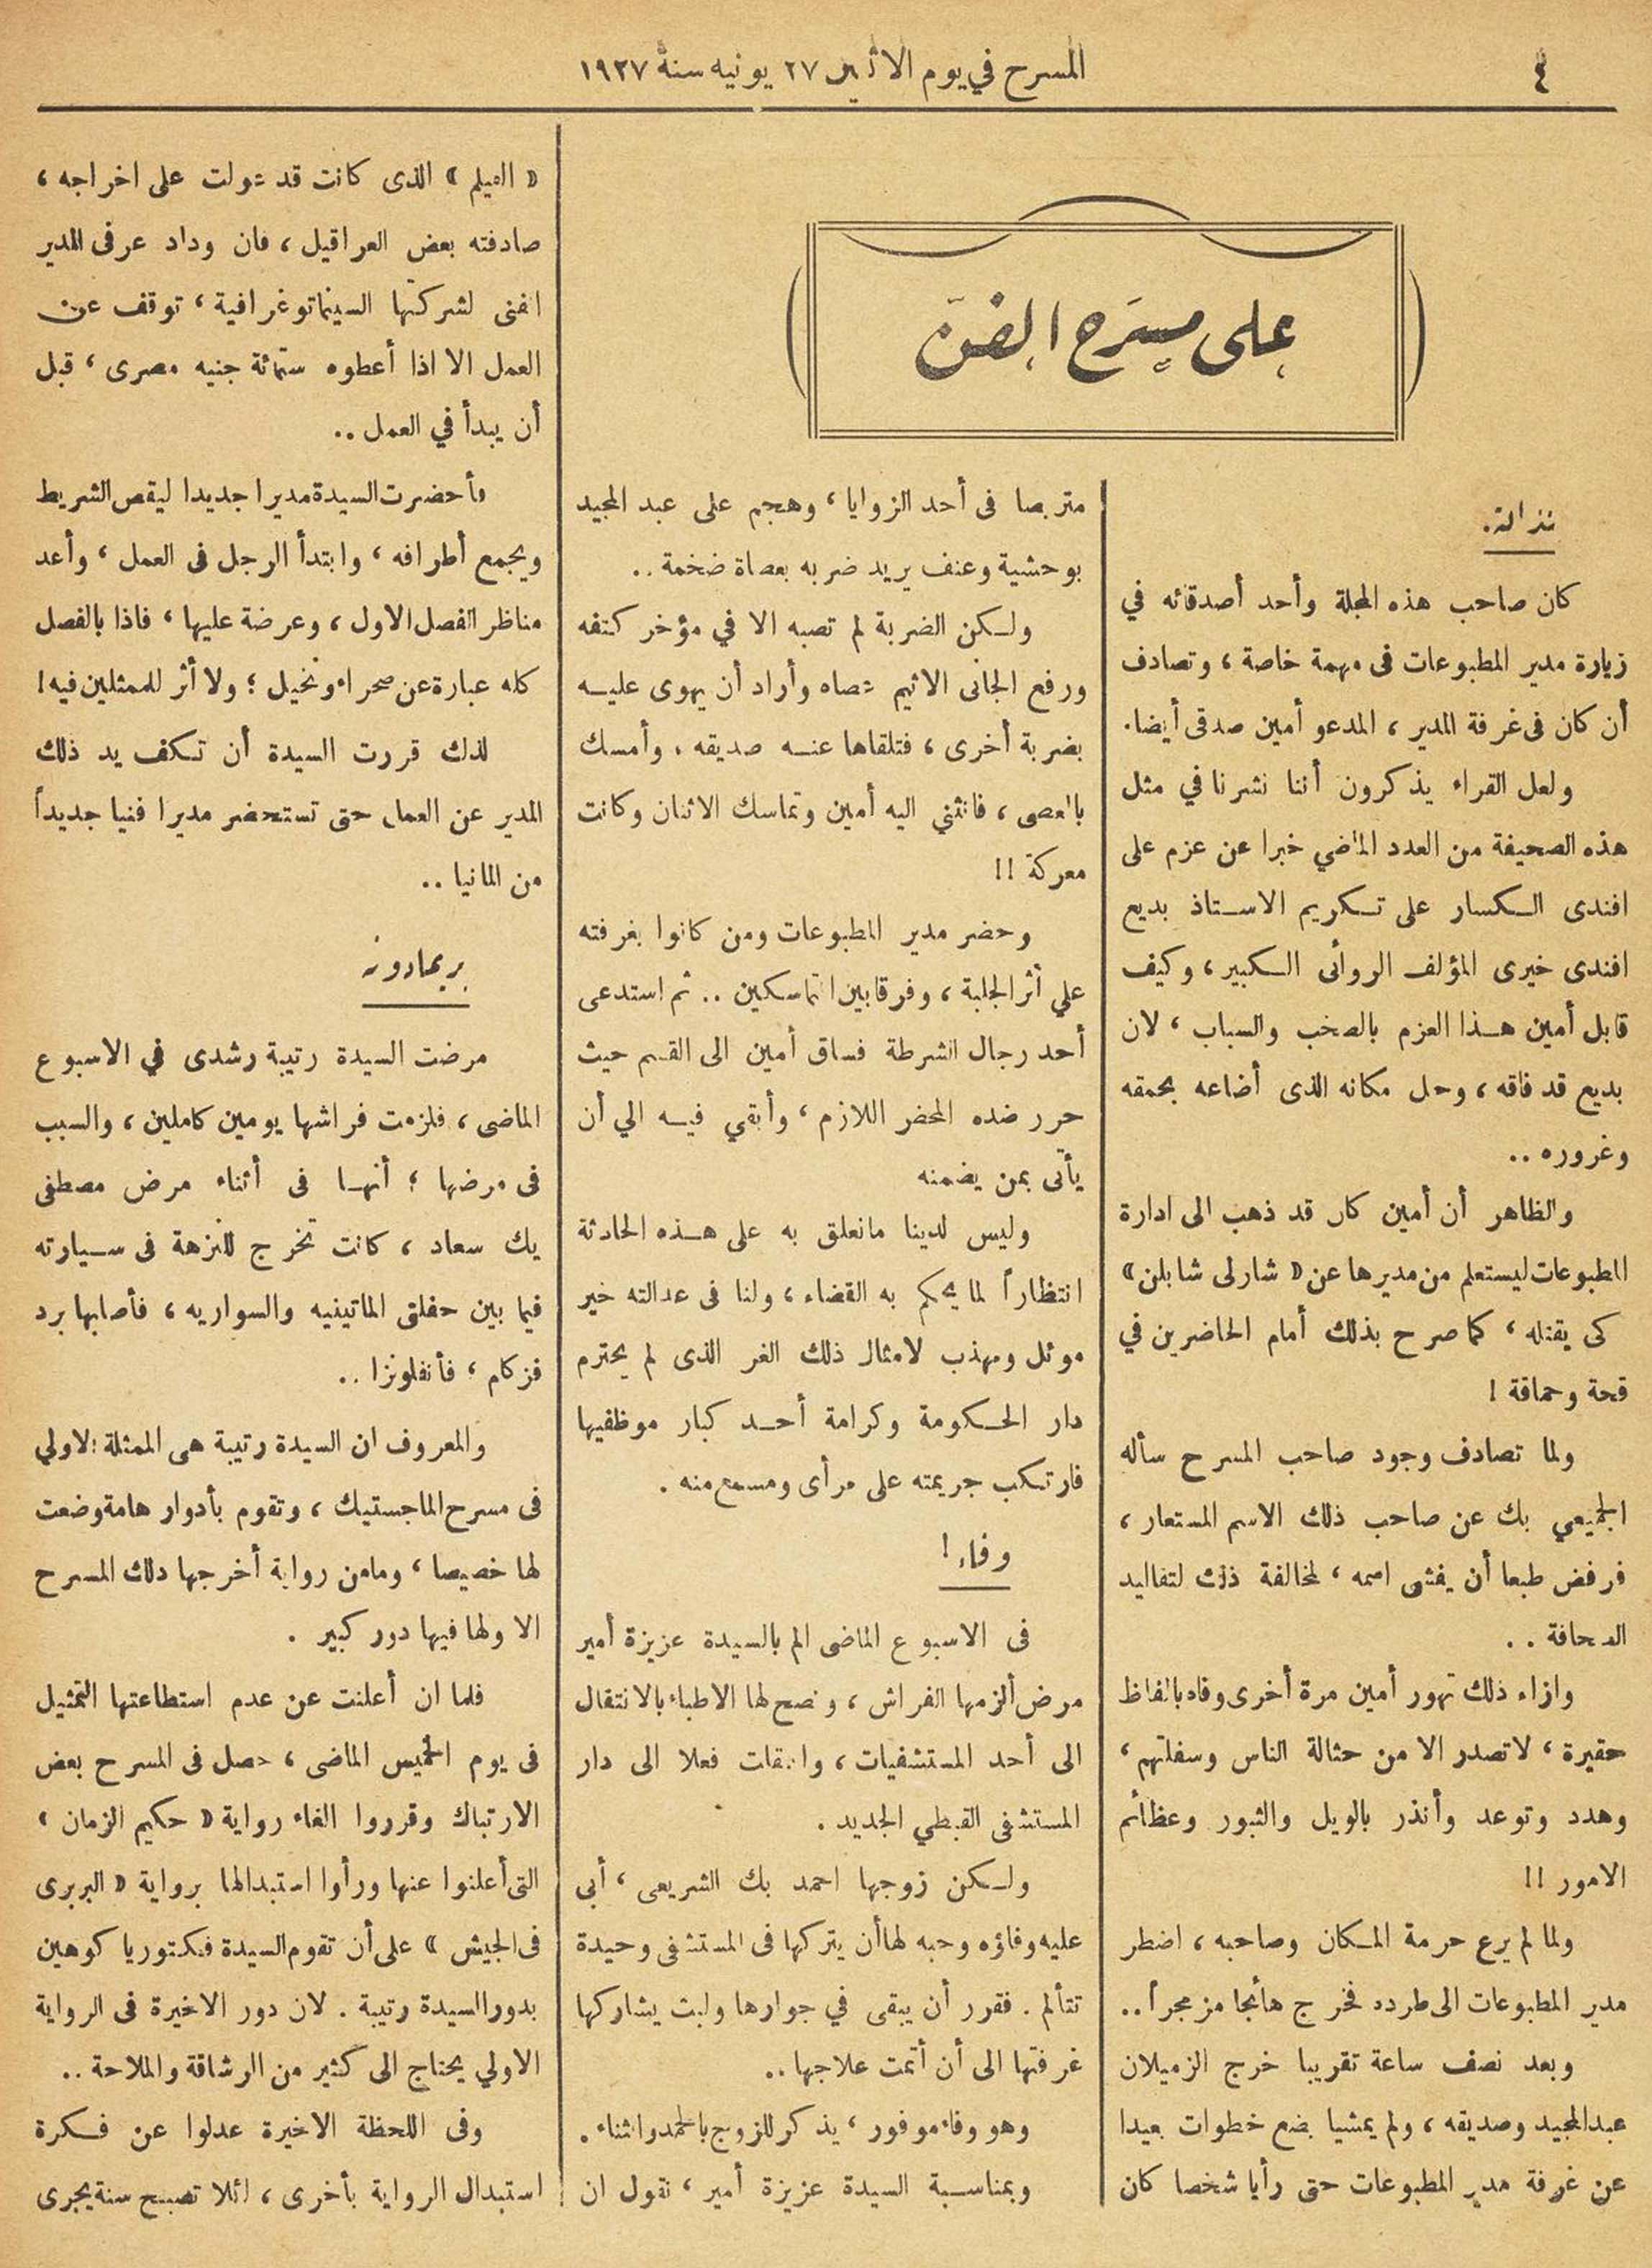 ٤
المسرح في يوم الاثنين ٢٧ يونيه سنة ١٩٢٧
على مسرح الفن
نذالة.
كان صاحب هذه المجلة وأحد أصدقائه في
زيارة مدير المطبوعات فى مهمة خاصة ، وتصادف
أن كان فى غرفة المدير ، المدعو أمين صدقى أيضا.
ولعل القراء يذكرون أننا نشرنا في مثل
هذه الصحيفة من العدد الماضي خبرا عن عزم على
افندى الكسار على تكريم الاستاذ بديع
افندى خيرى المؤلف الروائى الكبير ، وكيف
قابل أمين هذا العزم بالصخب والسباب ، لان
بديع قد فاقه ، وحل مكانه الذى أضاعه بحمقه
وغروره ..
والظاهر أن أمين كان قد ذهب الى ادارة
المطبوعات ليستعلم من مديرها عن « شارلى شابلن »
كى يقتله ، كما صرح بذلك أمام الحاضرين في
قحة وحماقة !
ولما تصادف وجود صاحب المسرح سأله
الجميعي بك عن صاحب ذلك الاسم المستعار ،
فرفض طبعا أن يفشى اسمه ، لمخالفة ذلك لتقاليد
الصحافة ..
وازاء ذلك تهور أمين مرة أخرى وفاه بالفاظ
حقيرة ، لا تصدر الا من حثالة الناس وسفلتهم ،
وهدد وتوعد وأنذر بالويل والثبور وعظائم
الامور !!
ولما لم يرع حرمة المكان وصاحبه ، اضطر
مدير المطبوعات الى طرده فخرج هائجا مزمجرا ..
وبعد نصف ساعة تقريبا خرج الزميلان
عبدالمجيد وصديقه ، ولم يمشيا بضع خطوات بعيدا
عن غرفة مدير المطبوعات حتى رأيا شخصا كان
متربصا فى أحد الزوايا ، وهجم على عبد المجيد
بوحشية وعنف يريد ضربه بعصاة ضخمة ..
ولكن الضربة لم تصبه الا في مؤخر كتفه
ورفع الجانى الاثيم عصاه وأراد أن يهوى عليه
بضربة أخرى ، فتلقاها عنه صديقه ، وأمسك
بالعصى ، فانثني اليه أمين وتماسك الاثنان وكانت
معركة !!
وحضر مدير المطبوعات ومن كانوا بغرفته
علي أثر الجلبة ، وفرقا بين المتماسكين .. ثم استدعى
أحد رجال الشرطة فساق أمين الى القسم حيث
حرر ضده المحضر اللازم ، وأبقي فيه الي أن
يأتى بمن يضمنه
وليس لدينا مانعلق به على هذه الحادثة
انتظاراً لما يحكم به القضاء ، ولنا فى عدالته خير
موئل ومهذب لامثال ذلك الغر الذى لم يحترم
دار الحكومة وكرامة أحد كبار موظفيها
فارتكب جريمته على مرأى ومسمع منه .
وفاء !
فى الاسبوع الماضى الم بالسيدة عزيزة أمير
مرض ألزمها الفراش ، ونصح لها الاطباء بالانتقال
الى أحد المستشفيات ، وانتقلت فعلا الى دار
المستشفى القبطي الجديد .
ولكن زوجها احمد بك الشريعى ، أبى
عليه وفاؤه وحبه لها أن يتركها فى المستشفى وحيدة
تتألم . فقرر أن يبقى في جوارها ولبث يشاركها
غرفتها الى أن أتمت علاجها ..
وهو وفاء موفور ، يذكر للزوج بالحمد والثناء .
وبمناسبة السيدة عزيزة أمير ، نقول ان
« الفيلم » الذى كانت قد عولت على اخراجه ،
صادفته بعض العراقيل ، فان وداد عرفى المدير
الفنى لشركتها السينماتوغرافية ، توقف عن
العمل الا اذا أعطوه ستمائة جنيه مصرى ، قبل
أن يبدأ في العمل ..
فأحضرت السيدة مديرا جديدا ليقص الشريط
ويجمع أطرافه ، وابتدأ الرجل فى العمل ، وأعد
مناظر الفصل الاول ، وعرضة عليها ، فاذا بالفصل
كله عبارة عن صحراء ونخيل ؛ ولا أثر للممثلين فيه !
لذلك قررت السيدة أن تكف يد ذلك
المدير عن العمل حتى تستحضر مديرا فنيا جديداً
من المانيا ..
بريمادونه
مرضت السيدة رتيبة رشدى في الاسبوع
الماضى ، فلزمت فراشها يومين كاملين ، والسبب
فى مرضها ؛ أنها فى أثناء مرض مصطفى
بك سعاد ، كانت تخرج للنزهة فى سيارته
فيما بين حفلتى الماتينيه والسواريه ، فأصابها برد
فزكام ، فأنفلونزا ..
والمعروف ان السيدة رتيبة هى الممثلة الاولي
فى مسرح الماجستيك ، وتقوم بأدوار هامة وضعت
لها خصيصا ، ومامن رواية أخرجها ذلك المسرح
الا ولها فيها دور كبير .
فلما ان أعلنت عن عدم استطاعتها التمثيل
فى يوم الخميس الماضى ، حصل فى المسرح بعض
الارتباك وقرروا الغاء رواية « حكيم الزمان »
التى أعلنوا عنها ورأوا استبدالها برواية « البربرى
فى الجيش » على أن تقوم السيدة فكتوريا كوهين
بدور السيدة رتيبة . لان دور الاخيرة فى الرواية
الاولي يحتاج الى كثير من الرشاقة والملاحة ..
وفى اللحظة الاخيرة عدلوا عن فكرة
استبدال الرواية بأخرى ، لئلا تصبح سنة يجرى